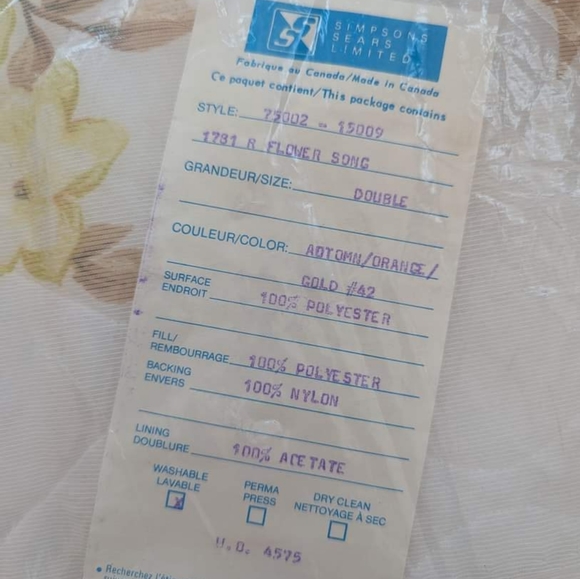 SIMPSONS
SEARS
LIMITED
Fabrique au Canada/Made in Canada
Ce paquet contient/This package contains
STYLE: 73002 - 15009
1781 R FLOWER SONG
GRANDEUR/SIZE: DOUBLE
COULEUR/COLOR: AUTOMN/ORANGE/
GOLD #42
SURFACE
ENDROIT 100% POLYESTER
FILL/
REMBOURRAGE 100% POLYESTER
BACKING
ENVERS 100% NYLON
LINING
DOUBLURE 100% ACETATE
WASHABLE
LAVABLE
PERMA
PRESS
DRY CLEAN
NETTOYAGE À SEC
W.O. 4575
• Recherchez